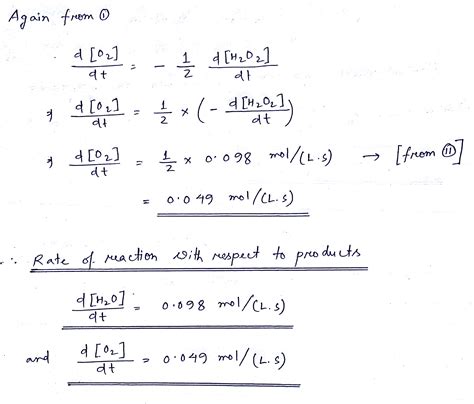 Again from ①
d[O₂]/dt = - 1/2 d[H₂O₂]/dt
⇒ d[O₂]/dt = 1/2 × (- d[H₂O₂]/dt)
⇒ d[O₂]/dt = 1/2 × 0.098 mol/(L.s) → [from ⑪]
= 0.049 mol/(L.s)
∴ Rate of reaction with respect to products
d[H₂O]/dt = 0.098 mol/(L.s)
and d[O₂]/dt = 0.049 mol/(L.s)